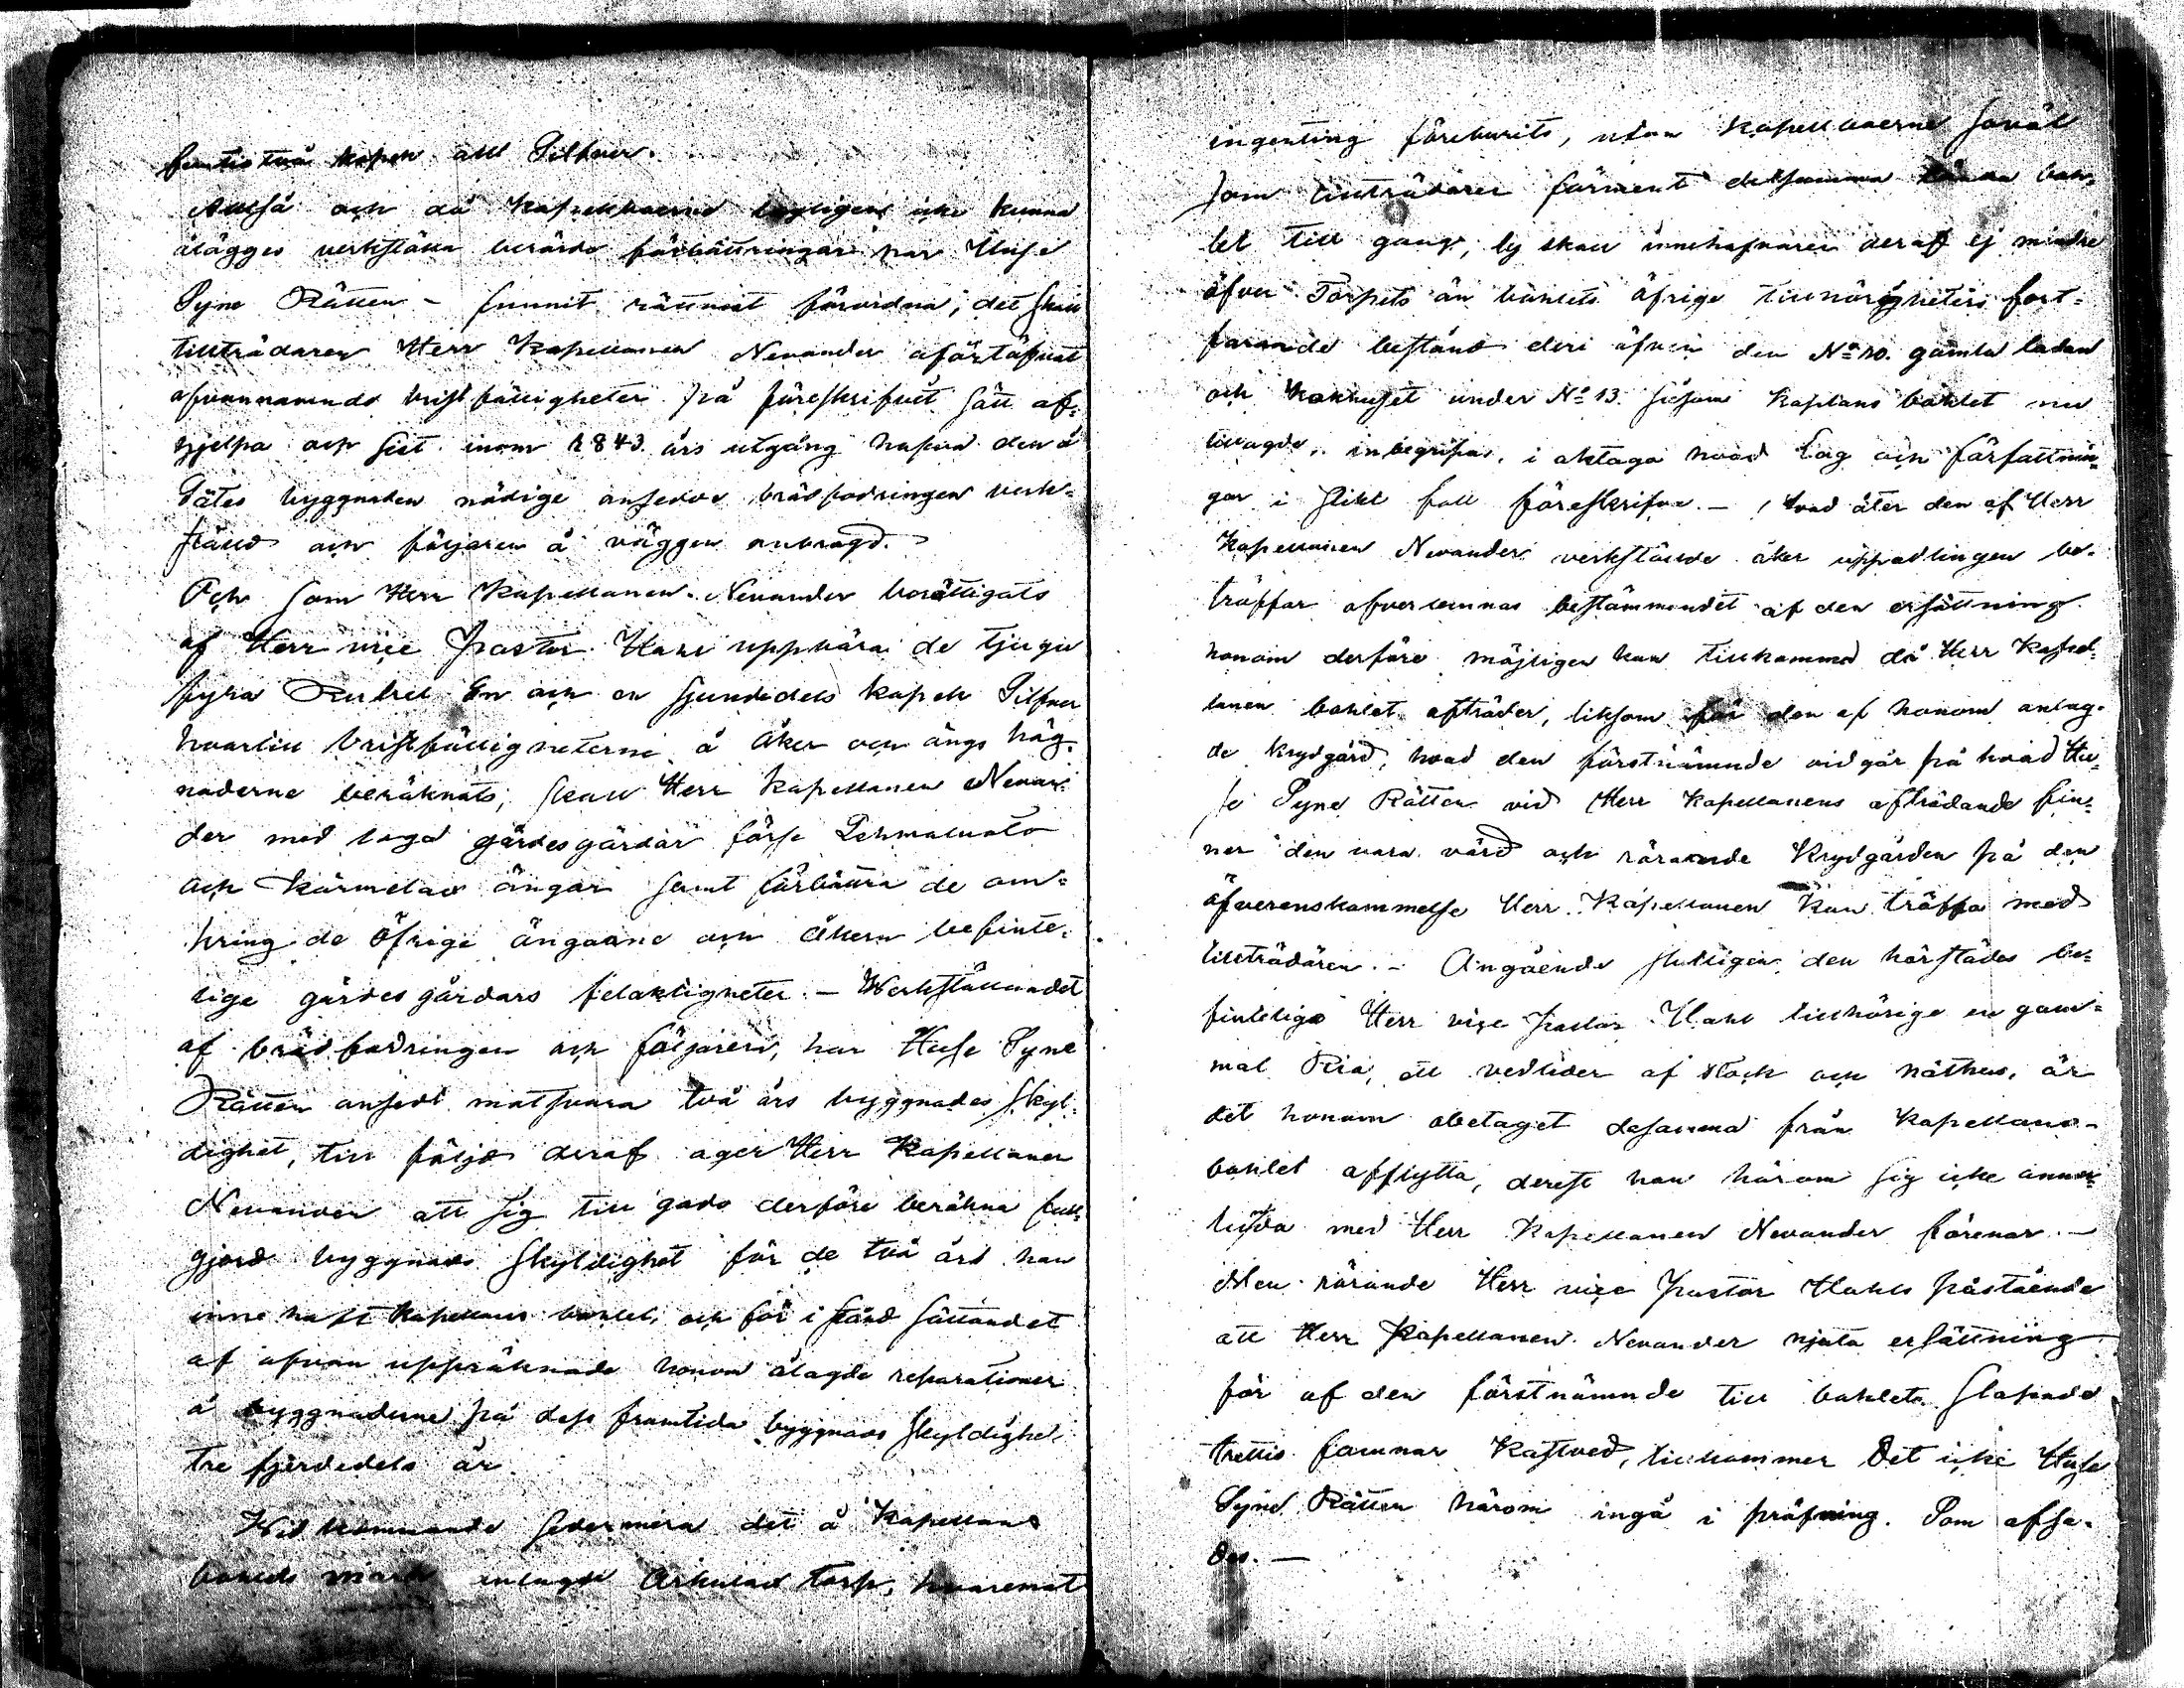 femtio två kopek allt Silfver.
Alltså och då Kapellboerne lagligen icke kunna
ålägges verkställa berörde förbättringar har Huse
Syne Rätten – funnit rättvist förordna, det skall
tillträdaren Herr Kapellanen Nevander oförtöfvat
ofvannämnde bristfälligheter på föreskrifvit sätt af-
hjelpa och sist inom 1843 års utgång hafva den å
Sätes byggnaden nödige ansedde brädfodringen verk-
ställd och följaren å väggen anbragd.
Och som Herr Kapellanen Nevander berättigats
af Herr vice Pastor Hahl uppbära de tjugu
fyra Rubel En och en sjundedels kopek Silfver
hvartill bristfälligheterne å åker och ängs häg-
naderne beräknats, skall Herr Kapellanen Nevan-
der med laga gärdesgårdar förse Lehmaluoto
och Kärmelax ängar samt förbättra de om-
kring de öfrige ängarne och åkern befinte-
lige gärdesgårdars felaktigheter. – Werkställandet
af brädfodringen och följaren, har Huse Syne
Rätten ansedt motsvara två års byggnads skyl-
dighet, till följe deraf äger Herr Kapellanen
Nevander att sig till godo derföre beräkna full-
gjord byggnads skyldighet för de två års han
innehaft Kapellans bohlet, och för i stånd sättandet
af ofvan uppräknade honom ålagde reparationer
å byggnaderne på dess framtida byggnads skyldighet
tre fjerdedels år.
Widkommande sedermera det å Kapellans
bohlets mark anlagde torp, hvaremot
ingenting föreburits, utan Kapellboerne såväl
som tillträdaren förment detsamma lända boh-
let till gagn, ty skall innehafvaren deraf ej mindre
öfver Torpets än bohlets öfrige tillhörigheters fort-
farande bestånd deri äfven den No 10. gamla ladan
och kokhuset under No 13. såsom Kaplans bohlet nu
tillagde, inbegripas, i akttaga hvad Lag och författnin-
gar i slikt fall föreskrifva. – Hvad åter den af Herr
Kapellanen Nevander verkställde åker uppodlingen be-
träffar öfverlemnas bestämmandet af den ersättning
honom derföre möjligen kan tillkomma då Herr Kapel-
lanen bohlet afträder, liksom för den af honom anlag-
de krydgård, hvad den förstnämnde vidgår på hvad Hu-
se Syne Rätten vid Herr Kapellanens afträdande fin-
ner den vara värd och rörande Krydgården på den
öfverenskommelse Herr Kapellanen kan träffa med
tillträdaren. – Angående slutligen den härstädes be-
fintelige Herr vice Pastor Hahl tillhörige en gam-
mal Ria, ett vedlider af stock och nöthus, är
det honom obetaget desamma från Kapellans-
bohlet afflytta, derest han härom sig icke annor-
lunda med Herr Kapellanen Nevander förenar. –
Men rörande Herr vice Pastor Hahls påstående
att Herr Kapellanen Nevander njuta ersättning
för af den förstnämnde till bohlets
trettio famnar Kastved, tillkommer det icke Huse
Syne Rätten härom ingå i pröfning. Som afsa-
des. –